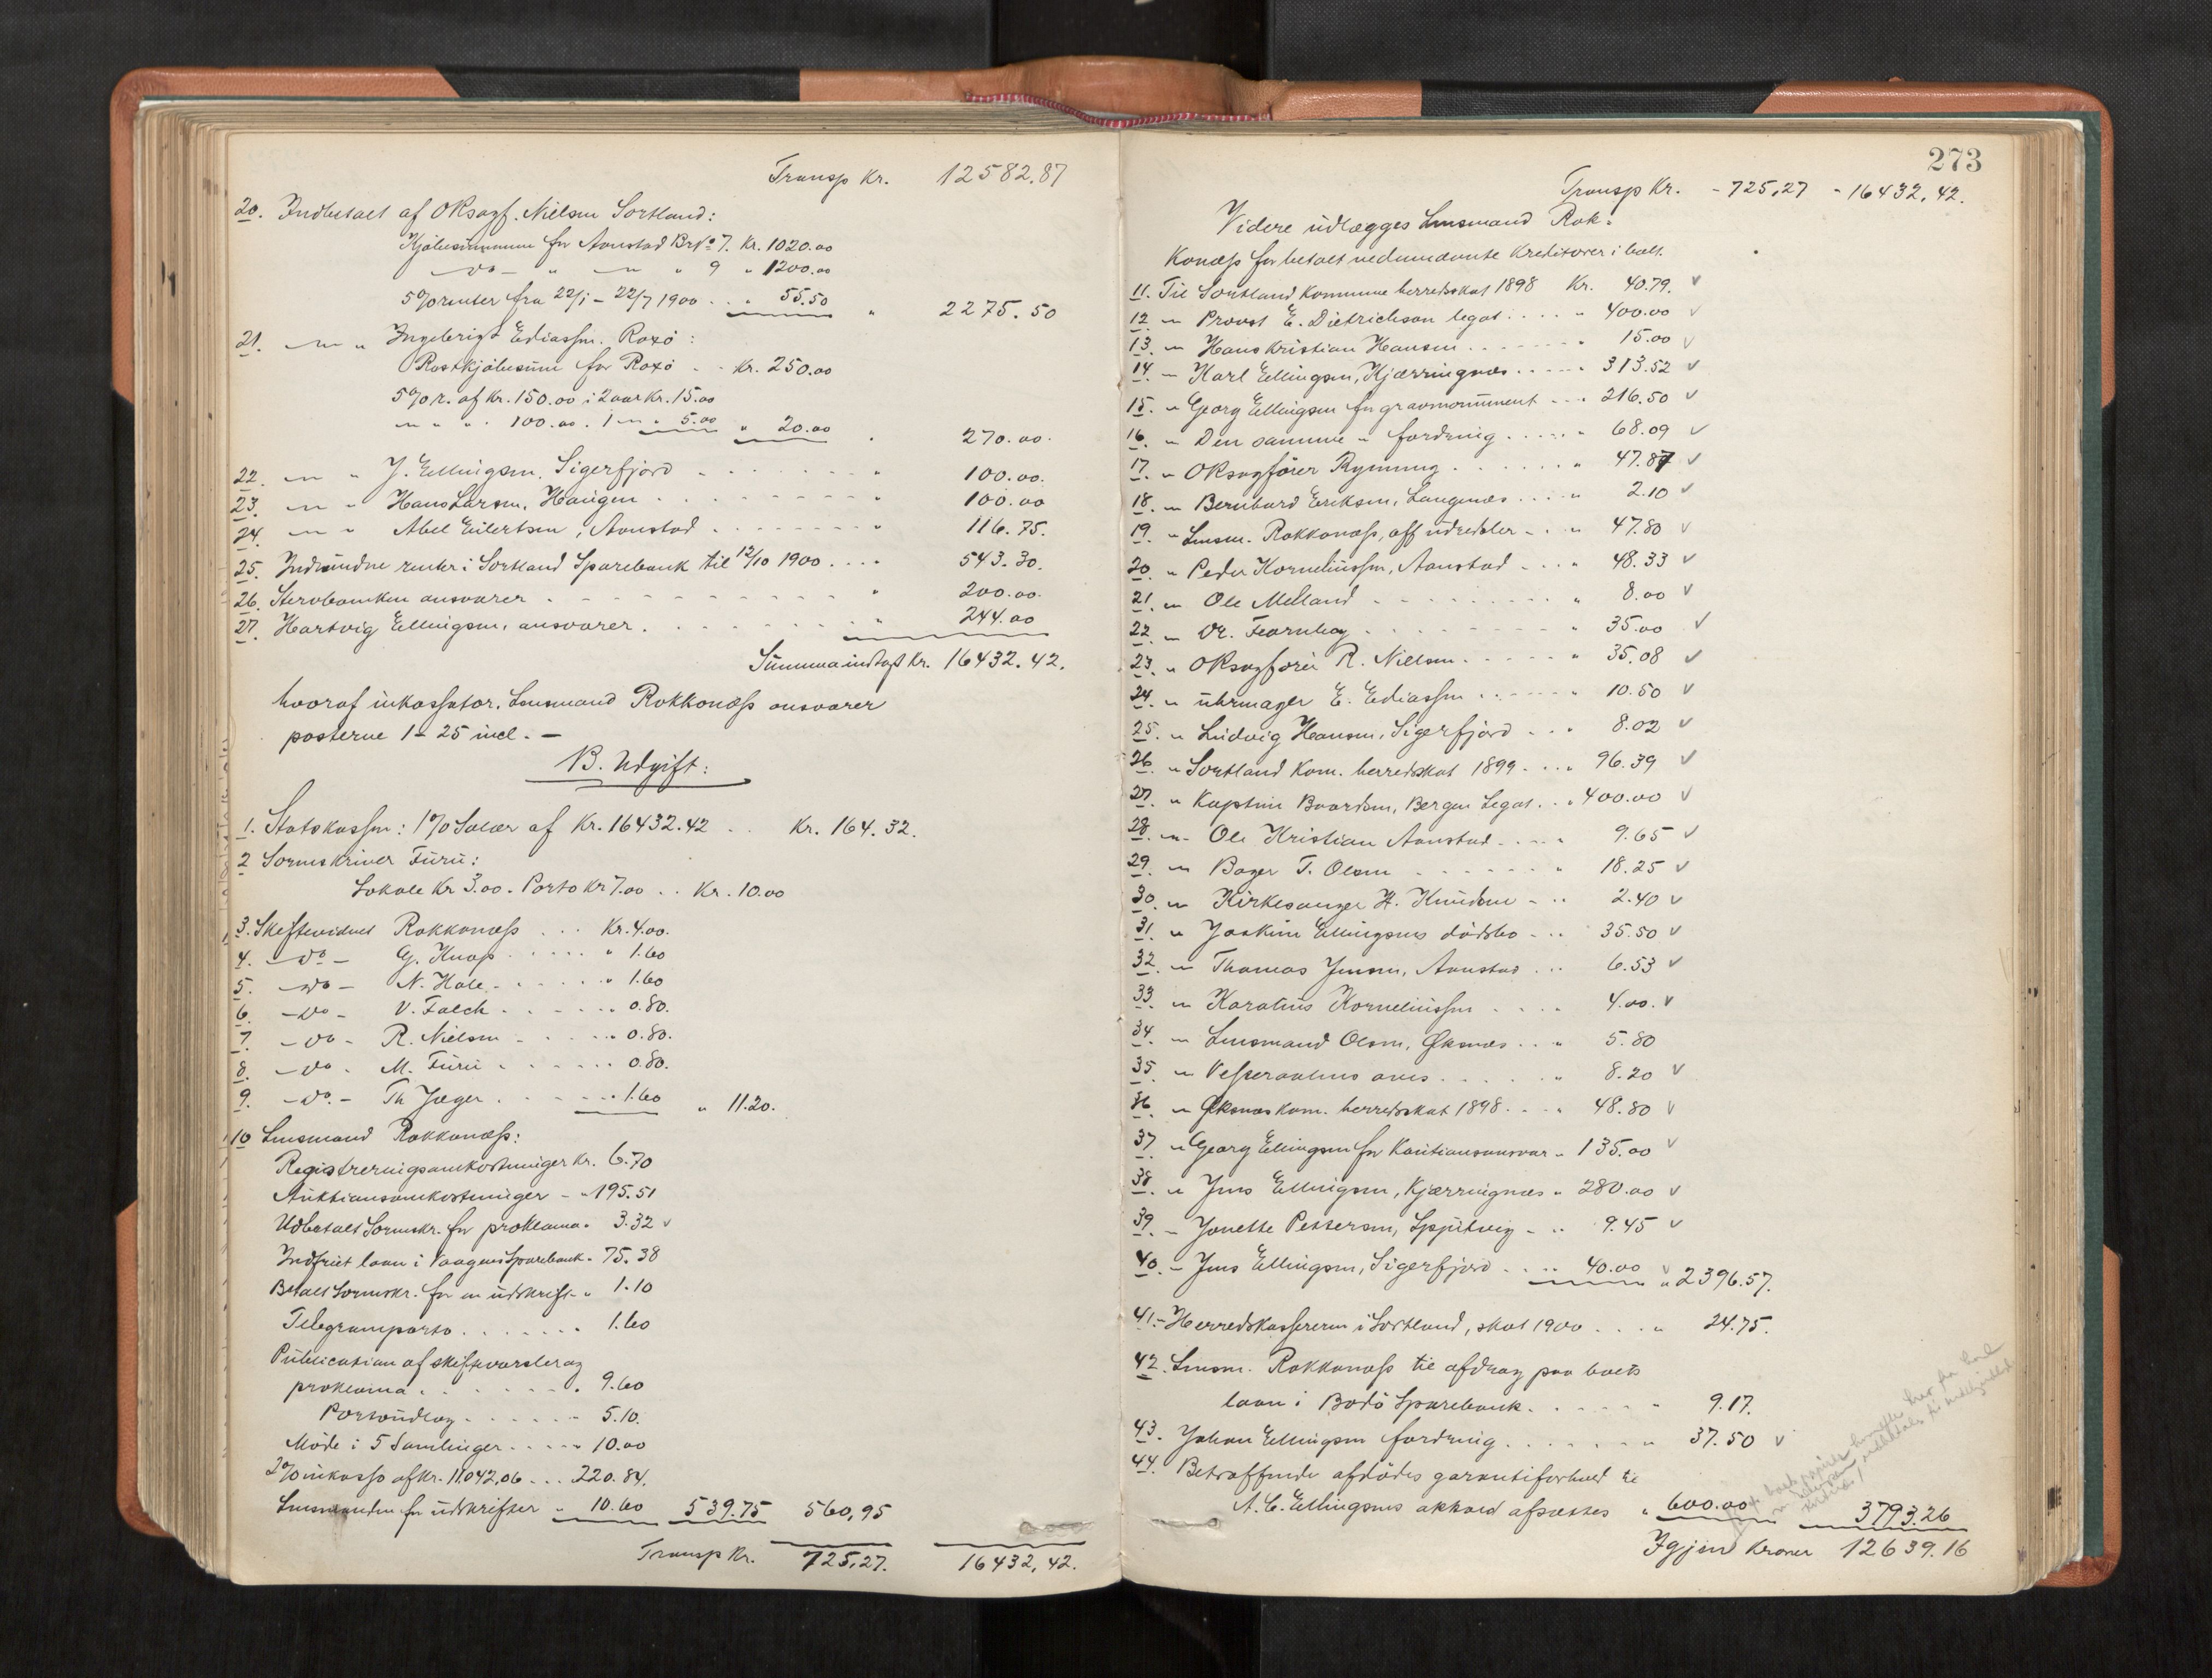 Transp Kr. 12582.87
20. Indbetalt af OKsagf. Nielsen Sortland:
Kjöbesummen for Aanstad Br No 7. Kr. 1020.00
- do - " - " - " 9 " 1200.00
5% renter fra 22/1 - 22/7 1900 . . " 55.50 " 2275.50
21. - " - " Ingebrigt Ediassen. Roxö:
Restkjöbesum for Roxö . . Kr. 250.00
5% r. af Kr. 150.00 i 2 aar Kr. 15.00
- " " " 100.00. 1 - " - " 5.00 " 20.00 " 270.00.
22. - " - " J. Ellingsen. Sigerfjord . . . . " 100.00.
23. - " - " Hans Larsen, Haugen . . . . " 100.00
24. - " - " Abel Eilertsen, Aanstad . . . . " 116.75.
25. Indvundne renter i Sortland Sparebank til 12/10 1900 . . . " 543.30.
26. Stervboenken ansvarer - - - - - " 200.00.
27. Hartvig Ellingsen, ansvarer . . . . " 244.00
Summa indtægt Kr. 16432.42.
hvoraf inkassator, Lensmand Rokkonæss ansvarer
posterne 1 - 25 incl. -
B. Udgift:
1. Statskassen: 1% Salær af Kr. 16432.42 . . Kr. 164.32.
2 Sorenskriver Furu:
Lokale Kr 3.00. Porto Kr 7.00 . . Kr. 10.00
3. Skiftevidnet Rokkonæss . . . Kr. 4.00.
4. - do - G. Knap . . . . " 1.60
5. - do - N. Hole - . . . . " 1.60
6. - do - V. Falch . . . . . . 0.80.
7. - do - R. Nielsen - . . . . . 0.80.
8. - do - M. Furu . . . . . . 0.80.
9. - do. - Th Jæger . . . . . . 1.60 " 11.20.
10 Lensmand Rokkonæss:
Registreringsomkostninger Kr. 6.70
Auktionsomkostninger - " 195.51
Udbetalt Sorenskr. for proklama " 3.32 v
Indfriet laan i Vaagens Sparebank " 75.38
Betalt Sorenskr. for en udskrift - " 1.10
Telegramporto . . . . . . . 1.60
Publication af skiftevarsler og
proklama . . . . . . . 9.60
Portoudlæg - . . . . . - 5.10.
Möde i 5 Samlinger . . . . - 10.00
2% inkasso af Kr. 11.042,06 . . . 220.84.
Lensmanden for udskrifter " 10.60 539.75 560,95
Transp Kr. 725,27. 16432,42.
273
Transp Kr. - 725,27 - 16432,42.
Videre udlægges Lensmand Rok=
konæss for betalt nedennævnte Kreditorer i hælt.
11. Til Sortland Kommune herredsskat 1898 Kr. 40.79. v
12 - " Provst E. Dietrichson legat . . . . " 400.00 v
13. - " Hans Kristian Hansen . . . . . . " 15.00 v
14. - Karl Ellingsen, Kjærringnæs . . . . " 313.52 v
15. " Georg Ellingsen for gravmonument - - . 216.50 v
16. " Den samme " fordring . . . . . " 68.09 v
17. " OKsagförer Rynning . . . . . . " 47.87 v
18. - " Bernhard Eriksen, Langenæs . . . . " 2.10 v
19. " Lensm. Rokkonæss, aff udredsler - . . " 47.80 v
20. " Peder Korneliussen, Aanstad - . . " 48.33 v
21. - " Ole Melland - - - - - " 8.00 v
22 - " Dr. Fearnley . . . . . . " 35.00 v
23. " OKsagförer R. Nielsen . . . . . " 35.08 v
24. " uhrmager E. Ediassen . . - - - . . 10.50 v
25. - " Ludvig Hansen, Sigerfjord . . " 8.02 v
26 " Sortland Kom. herredsskat 1899 . . . " 96.39 v
27. " Kaptein Baardsen, Bergen Legat . . " 400.00 v
28 - " - Ole Kristian Aanstad . . . . " 9.65 v
29. - " Bager T. Olsen . . . . . . " 18.25 v
30 - " Kirkesanger H. Knudsen - . . 2.40 v
31. " Joakim Ellingsens dödsbo - . . 35.50 v
32 - " Thomas Jensen, Aanstad . . . 6.53 v
33 - " Karolius Korneliussen . . . . 4.00. v
34 - " Lensmand Olsen, Øksnæs . . . " 5.80
35 - " Vesteraalens avis . . . . . " 8.20 v
36 - " Øksnæs kom. herredsskat 1898 . . . " 48.80 v
37 " Georg Ellingsen for Kautionsansvar " 135.00 v
38 . " Jens Ellingsen, Kjærringnæs " 280.00 v
39. - Jonette Pettersen, - . . 9.45 v
40. - Jens Ellingsen, Sigerfjord . . . . 40.00 v " 2396.57.
41. - Herredskassereren i Sortland, skat 1900 . . . " 24.75.
42. Lensm. Rokkonæss til afdrag paa boets
laan i Bodö Sparebank . . . . . " 9.17.
43. Johan Ellingsen fordring . . . . . . . " 37.50 v
44. Betræffende afdödes garantiforhold til
A. C. Ellingsens akkord afsættes " 600.00 3793.26
Igjen Kroner 12639.16